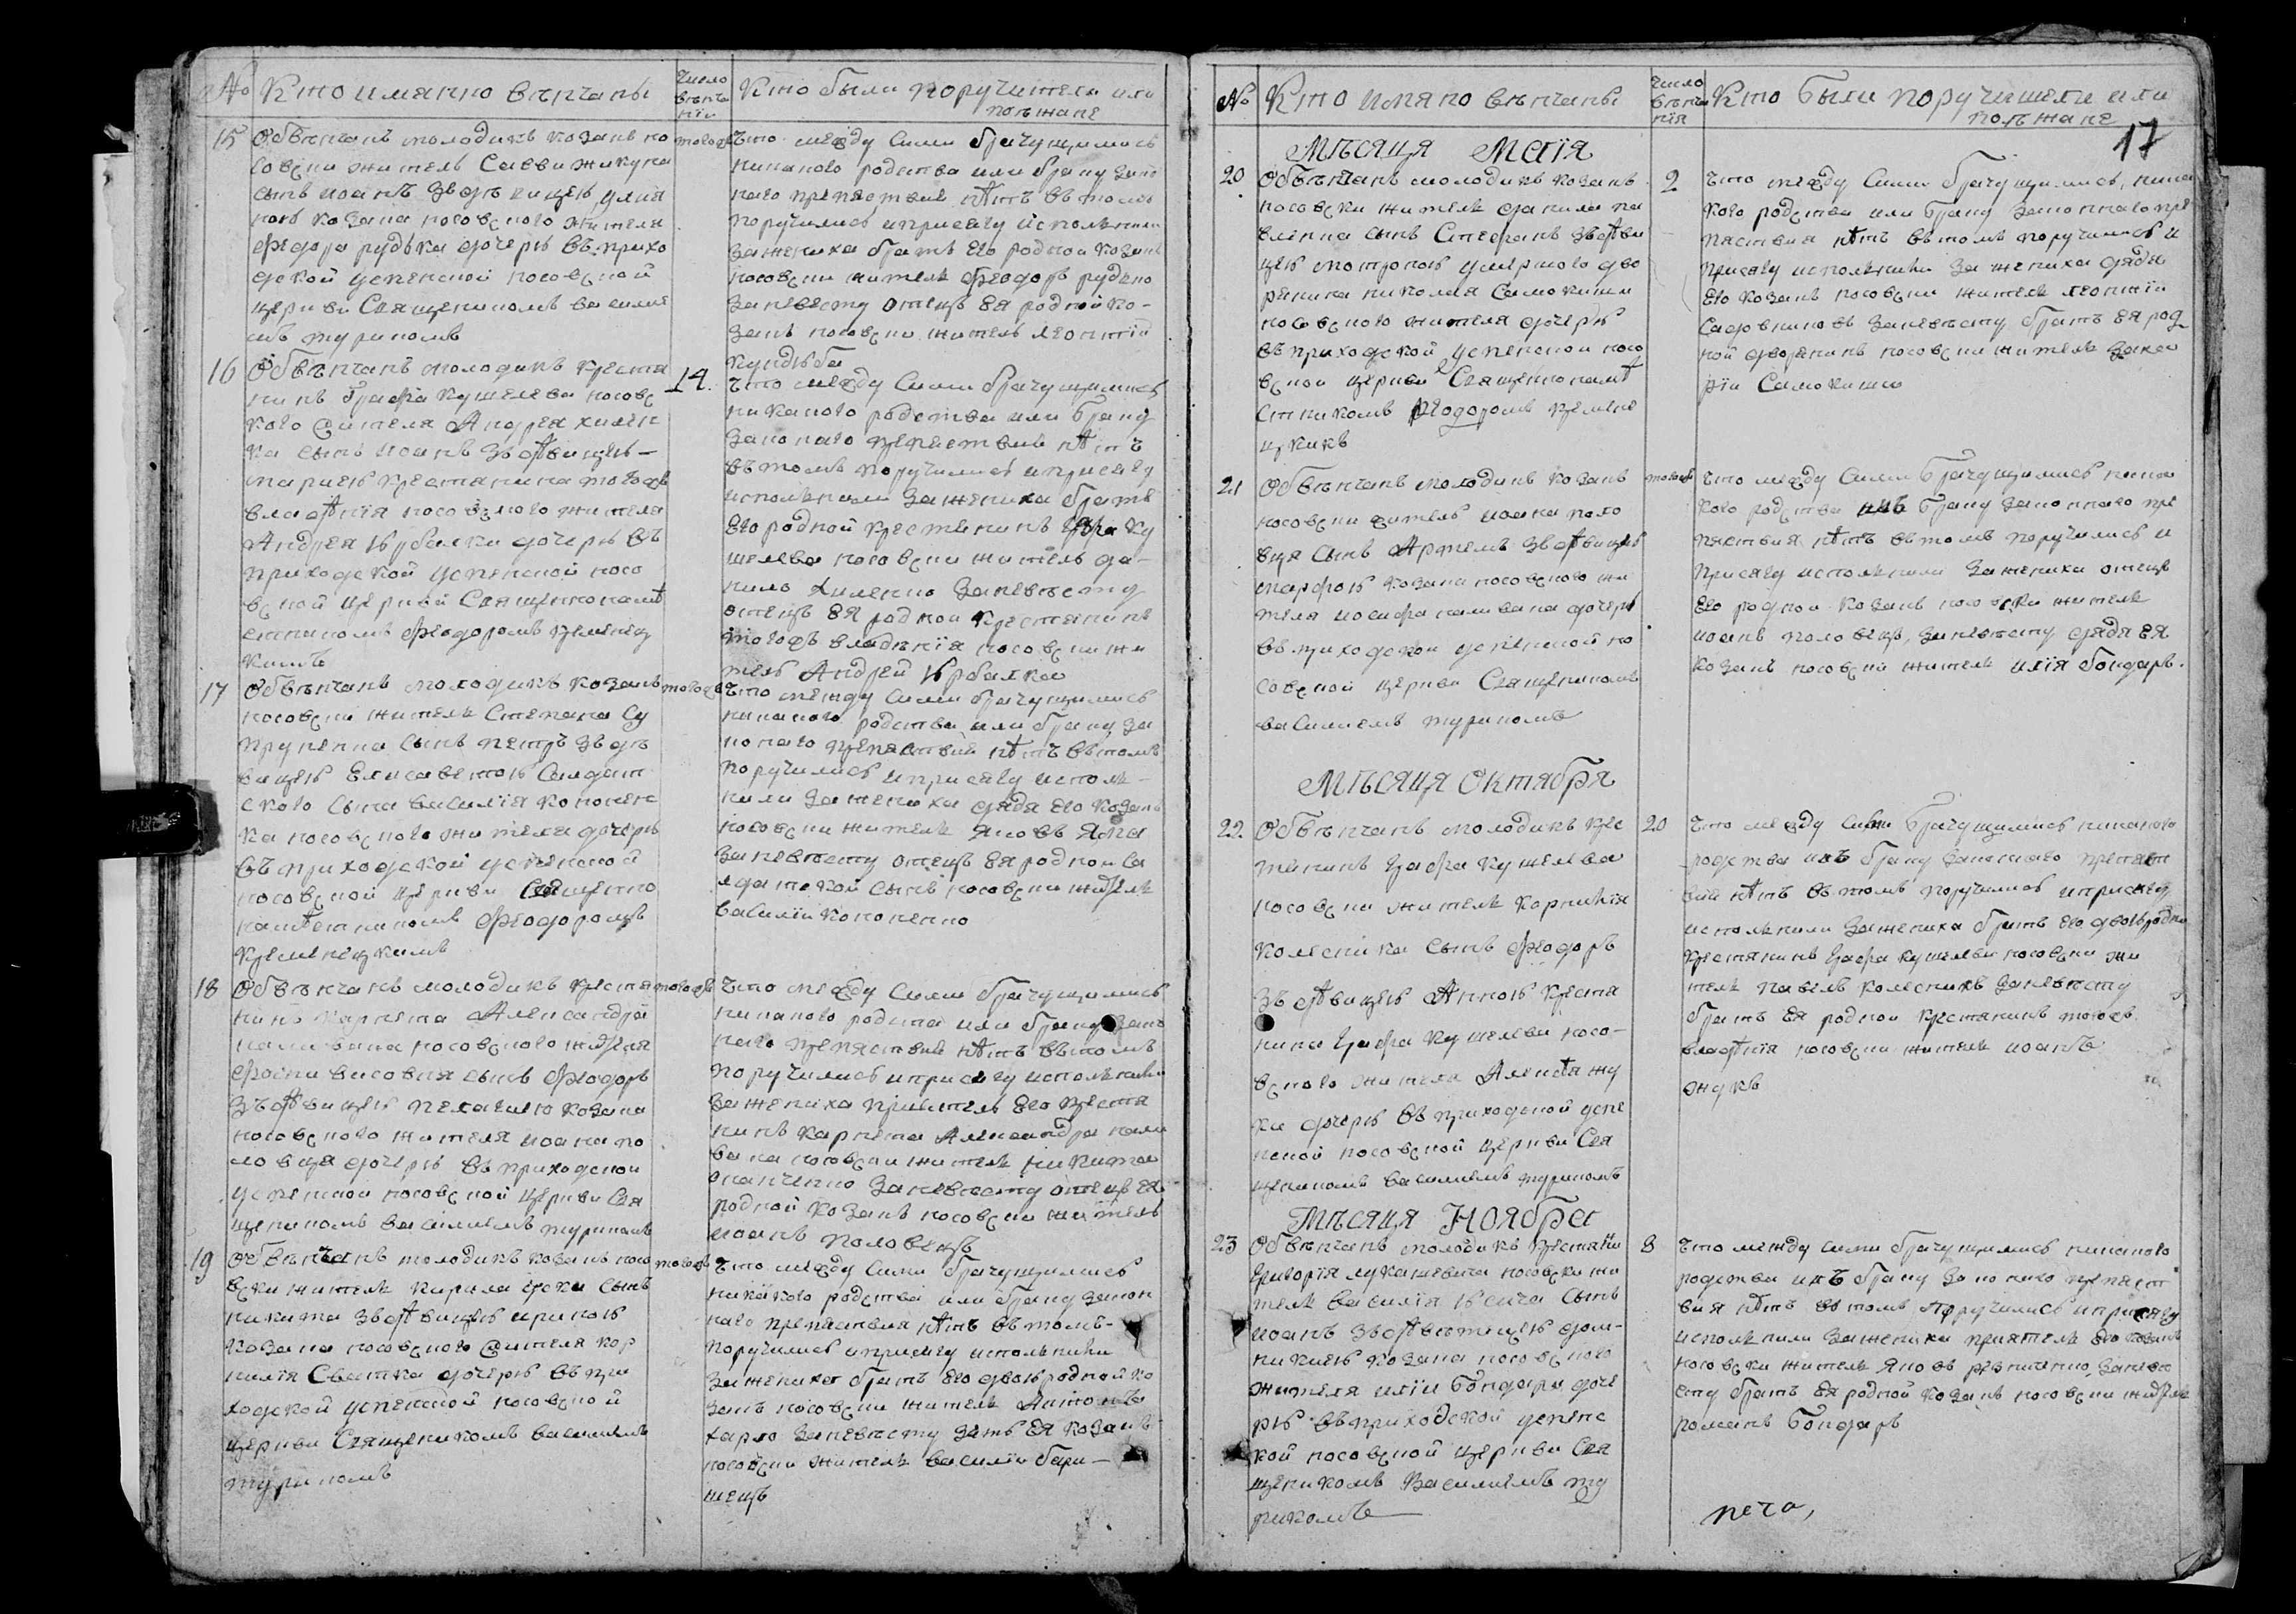 №
Кто имянно вѣнчаны
Число вѣнча нія
Кто были поручители или поѣжане
15
Обвѣнчанъ молодикъ козакъ но
совски житель Савви
сынъ іоаннъ зъ дѣвицею
козака носовского жителя
Феодора рудька дочерю въ прихо
дской успенской носовской
церкви Священикомъ василие
мъ туриномъ
тогожъ
Что между Сими брачущимись
никакого родства или браку зако
наго препяствия нѣтъ въ томъ
поручились и присягу исполнили
за жениха братъ Его родной козакъ
носовски житель Феодоръ рудко
за невесту отецъ Ея родной ко-
закъ носовски житель леонтій
16
Обвѣнчанъ молодикъ крестя
нинъ Графа кушелева носовс
кого жителя Андрея химен
ка сынъ іоаннъ зъ дѣвицею -
мариею крестянина тогожъ
владѣнія носовского жителя
Андрея Юрбалки дочерю въ
приходской успенской носо
вской церкви Священнонамѣ
стникомъ Феодоромъ кременец
кимъ
14.
Что между Сими брачущимись
никакого родства или браку
законаго препяствия нѣтъ
въ томъ поручились и присягу
исполнили за жениха братъ
Его родной крестянинъ Графа ку
шелева носовски житель да-
нило хименко за невѣсту
отецъ Ея родной крестянинъ
тогожъ владѣнія носовски жи
тель Андрей Юрбалка
17
Обвѣнчанъ молодикъ козакъ
носовски житель Степана Су
пруненка сынъ петръ зъ дѣ
вицею Елисаветою Салдат
ского сына василія кононен
ка носовского жителя дочерю
въ приходской успенской
носовской церкви Священно
намѣстникомъ Феодоромъ
кременецкимъ
тогожъ
Что между Сими брачущимись
никакого родства или браку за
конаго препяствий нѣтъ въ томъ
поручились и присягу исполн-
нили за жениха дядя его козакъ
носовски житель яковъ
за невѣсту отецъ Ея родной Са
лдатской сынъ носовски житель
василій кононенко
18
Обвѣнчанъ молодикъ крестя
нинъ карнета Александра
каливана носовского жителя
висовня сынъ Феодоръ
зъ дѣвицею пелагиею козака
носовского жителя иоана по
ловця дочерю въ приходской
успенской носовской церкви Свя
щеникомъ василиемъ туриномъ
тогожъ
Что между Сими брачущимись
никакого родства или браку зако
наго препяствия нѣтъ въ томъ
поручились и присягу исполнили
за жениха приятель Его крестя
нинъ карнета Александра кали
вана носовски житель никита
за невѣсту отецъ ея
родной козакъ носовски житель
иоанъ половецъ
19
Обвѣнчанъ молодикъ козакъ носо
вски житель кирила сынъ
никита зъ дѣвицею ириною
козака носовского жителя кор
нилія Святка дочерю въ при
ходской успенской носовской
церкви Священикомъ василиемъ
туриномъ
тогожъ
Что между Сими брачущимись
никакого родства или браку закон
наго препяствия нѣтъ въ томъ-
поручились и присягу исполнили
за жениха братъ его двоюродной ко
закъ носовски житель Антонъ
харко за невѣсту зять Ея козакъ
носовски житель василій бари-
шецъ
17
№
Кто имяно вѣнчаны
Число вѣнча нія
Кто были поручители или поѣжане
Мѣсяця Маія
20
Обвѣнчанъ молодикъ козакъ
носовски житель данила па
вленка сынъ Стефанъ зъ дѣви
цею мотроною умершого дво
ренина николая Самокиши
носовского жителя дочерю
въ приходской успенской носо
вской церкви Священнонамѣ
стникомъ Феодоромъ кремене
цкимъ
2
Что между Сими брачущимись, ника
кого родства или браку законнаго пре
пяствия нѣтъ въ томъ поручились и
присягу исполнили за жениха дядя
его козакъ носовски житель леонтій
Садовниковъ за невѣсту братъ Ея род
ной дворенинъ носовски житель заха
рій Самокиша
21
Обвѣнчанъ молодикъ козакъ
носовски житель иоана поло
вця сынъ Артемъ зъ дѣвицею
марфою козака носовского жи
теля иосифа каливана дочерю
въ приходской успенской но
совской церкви Священикомъ
василиемъ туриномъ
тогожъ
Что между Сими брачущимись ника
кого родства илѣ браку законнаго пре
пяствия нѣтъ въ томъ поручились и
присягу исполнили за жениха отецъ
Его родной козакъ носовски житель
иоанъ половецъ, за невѣсту дядя Ея
козакъ носовски житель илія бондарь.
Мѣсяця Октября
22
Обвѣнчанъ молодикъ кре
тянинъ Графа кушелева
носовски житель корнилія
колесника сынъ Феодоръ
зъ дѣвицею Анною крестя
нина Графа кушелева носо-
вского жителя Алексѣя жу
ка дочерю въ приходской успе
нской носовской церкви Свя
щеникомъ василиемъ туриномъ
20
Что между Сими брачущимись никакого
родства илѣ браку законнаго препяст
вия нѣтъ въ томъ поручились и присягу
исполнили за жениха братъ Его двоюродны
крестянинъ Графа кушелева носовски жи
тель павелъ колесникъ за невѣсту
братъ Ея родной крестянинъ тогожъ
владѣнія носовски житель иоанъ
жукъ
Мѣсяця Ноября
23
Обвѣнчанъ молодикъ крестянин
Григорія лукашевича носовски жи
тель василія сынъ
иоанъ зъ дѣвѣтицею дом-
никиею козака носовского
жителя иліи Бондаря доче
рю въ приходской успенс
кой носовской церкви Свя
щеникомъ василиемъ ту
риномъ
8
Что между сими брачущимись никакого
родства илѣ браку законнаго препяст
вия нѣтъ въ томъ поручились и присягу
исполнили за жениха приятель его козакъ
носовски житель яковъ за невѣ
сту братъ Ея родной козакъ носовски житель
романъ Бондарь